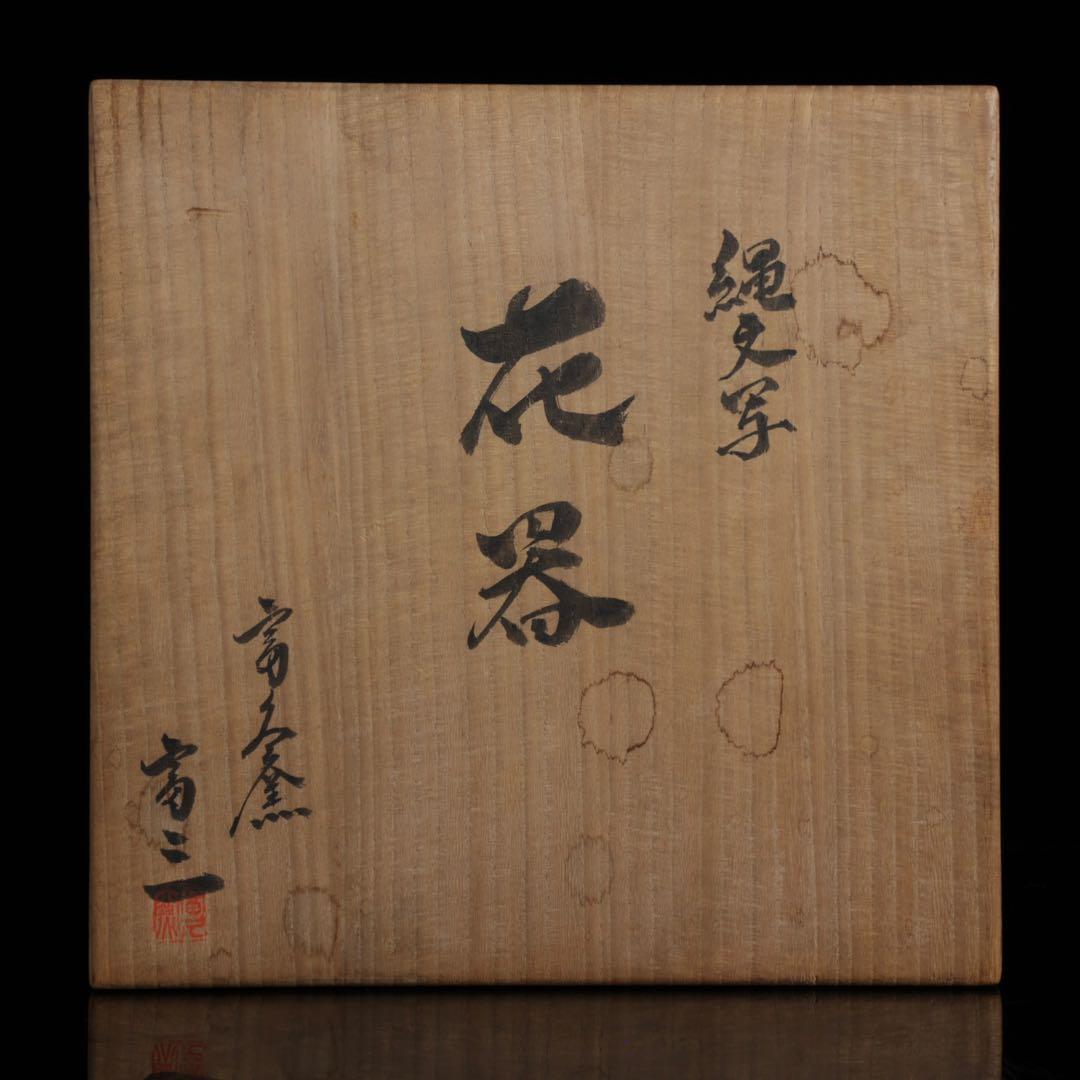 縄文写
花器
富久窯
富三